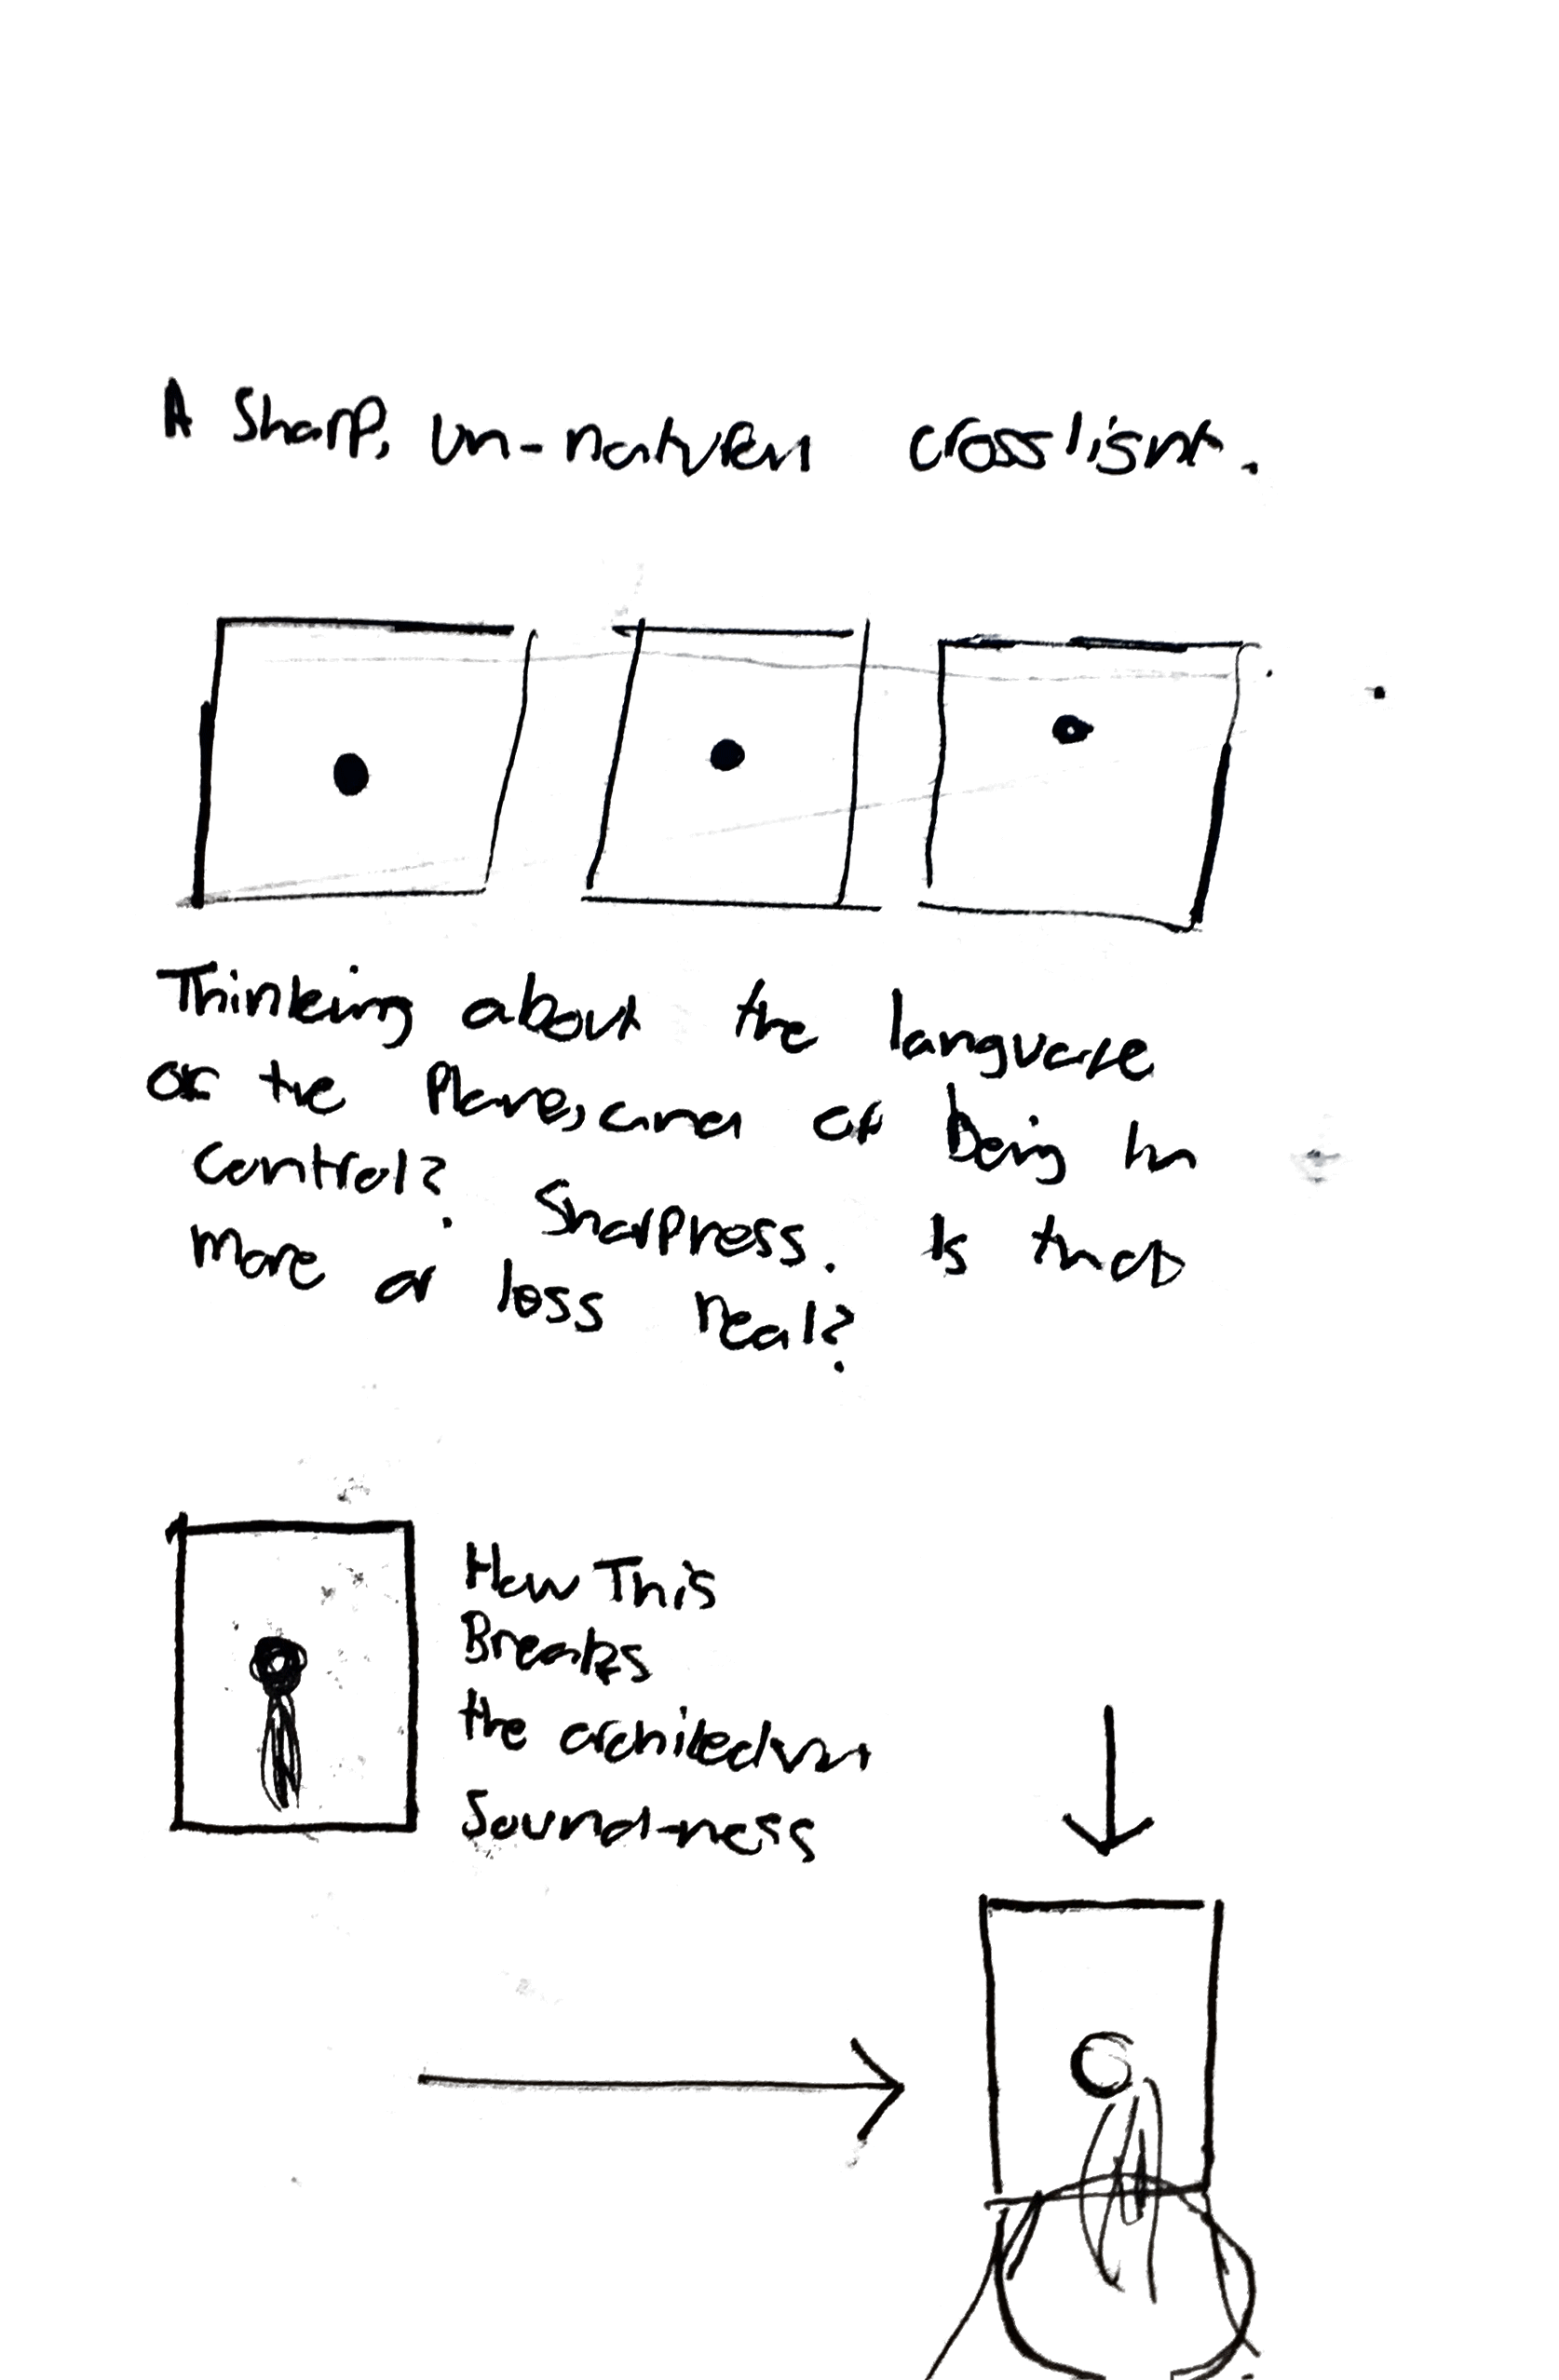 A Sharp, un-natural crosslight.
Thinking about the language
of the Plane, and of being in
control? Sharpness. Is that
more or less real?
How This
Breaks
the architectural
Sound-ness